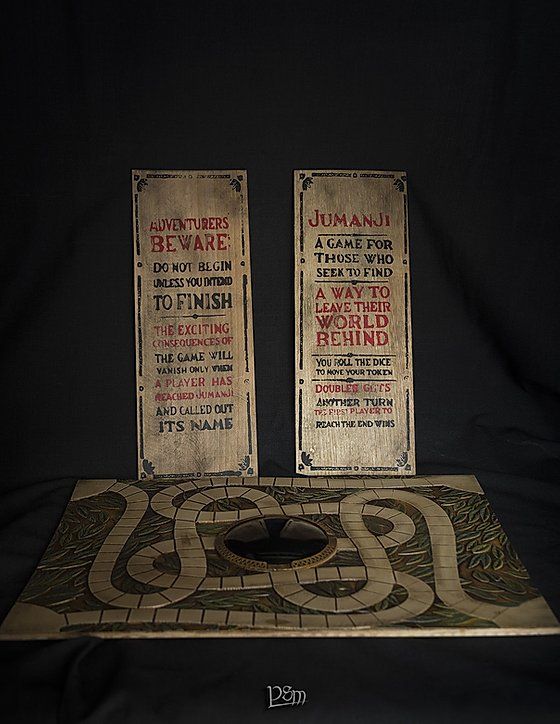 ADVENTURERS
BEWARE:
DO NOT BEGIN
UNLESS YOU INTEND
TO FINISH
THE EXCITING
CONSEQUENCES OF
THE GAME WILL
VANISH ONLY WHEN
A PLAYER HAS
REACHED JUMANJI
AND CALLED OUT
ITS NAME
JUMANJI
A GAME FOR
THOSE WHO
SEEK TO FIND
A WAY TO
LEAVE THEIR
WORLD
BEHIND
YOU ROLL THE DICE
TO MOVE YOUR TOKEN
DOUBLES GETS
ANOTHER TURN
THE FIRST PLAYER TO
REACH THE END WINS